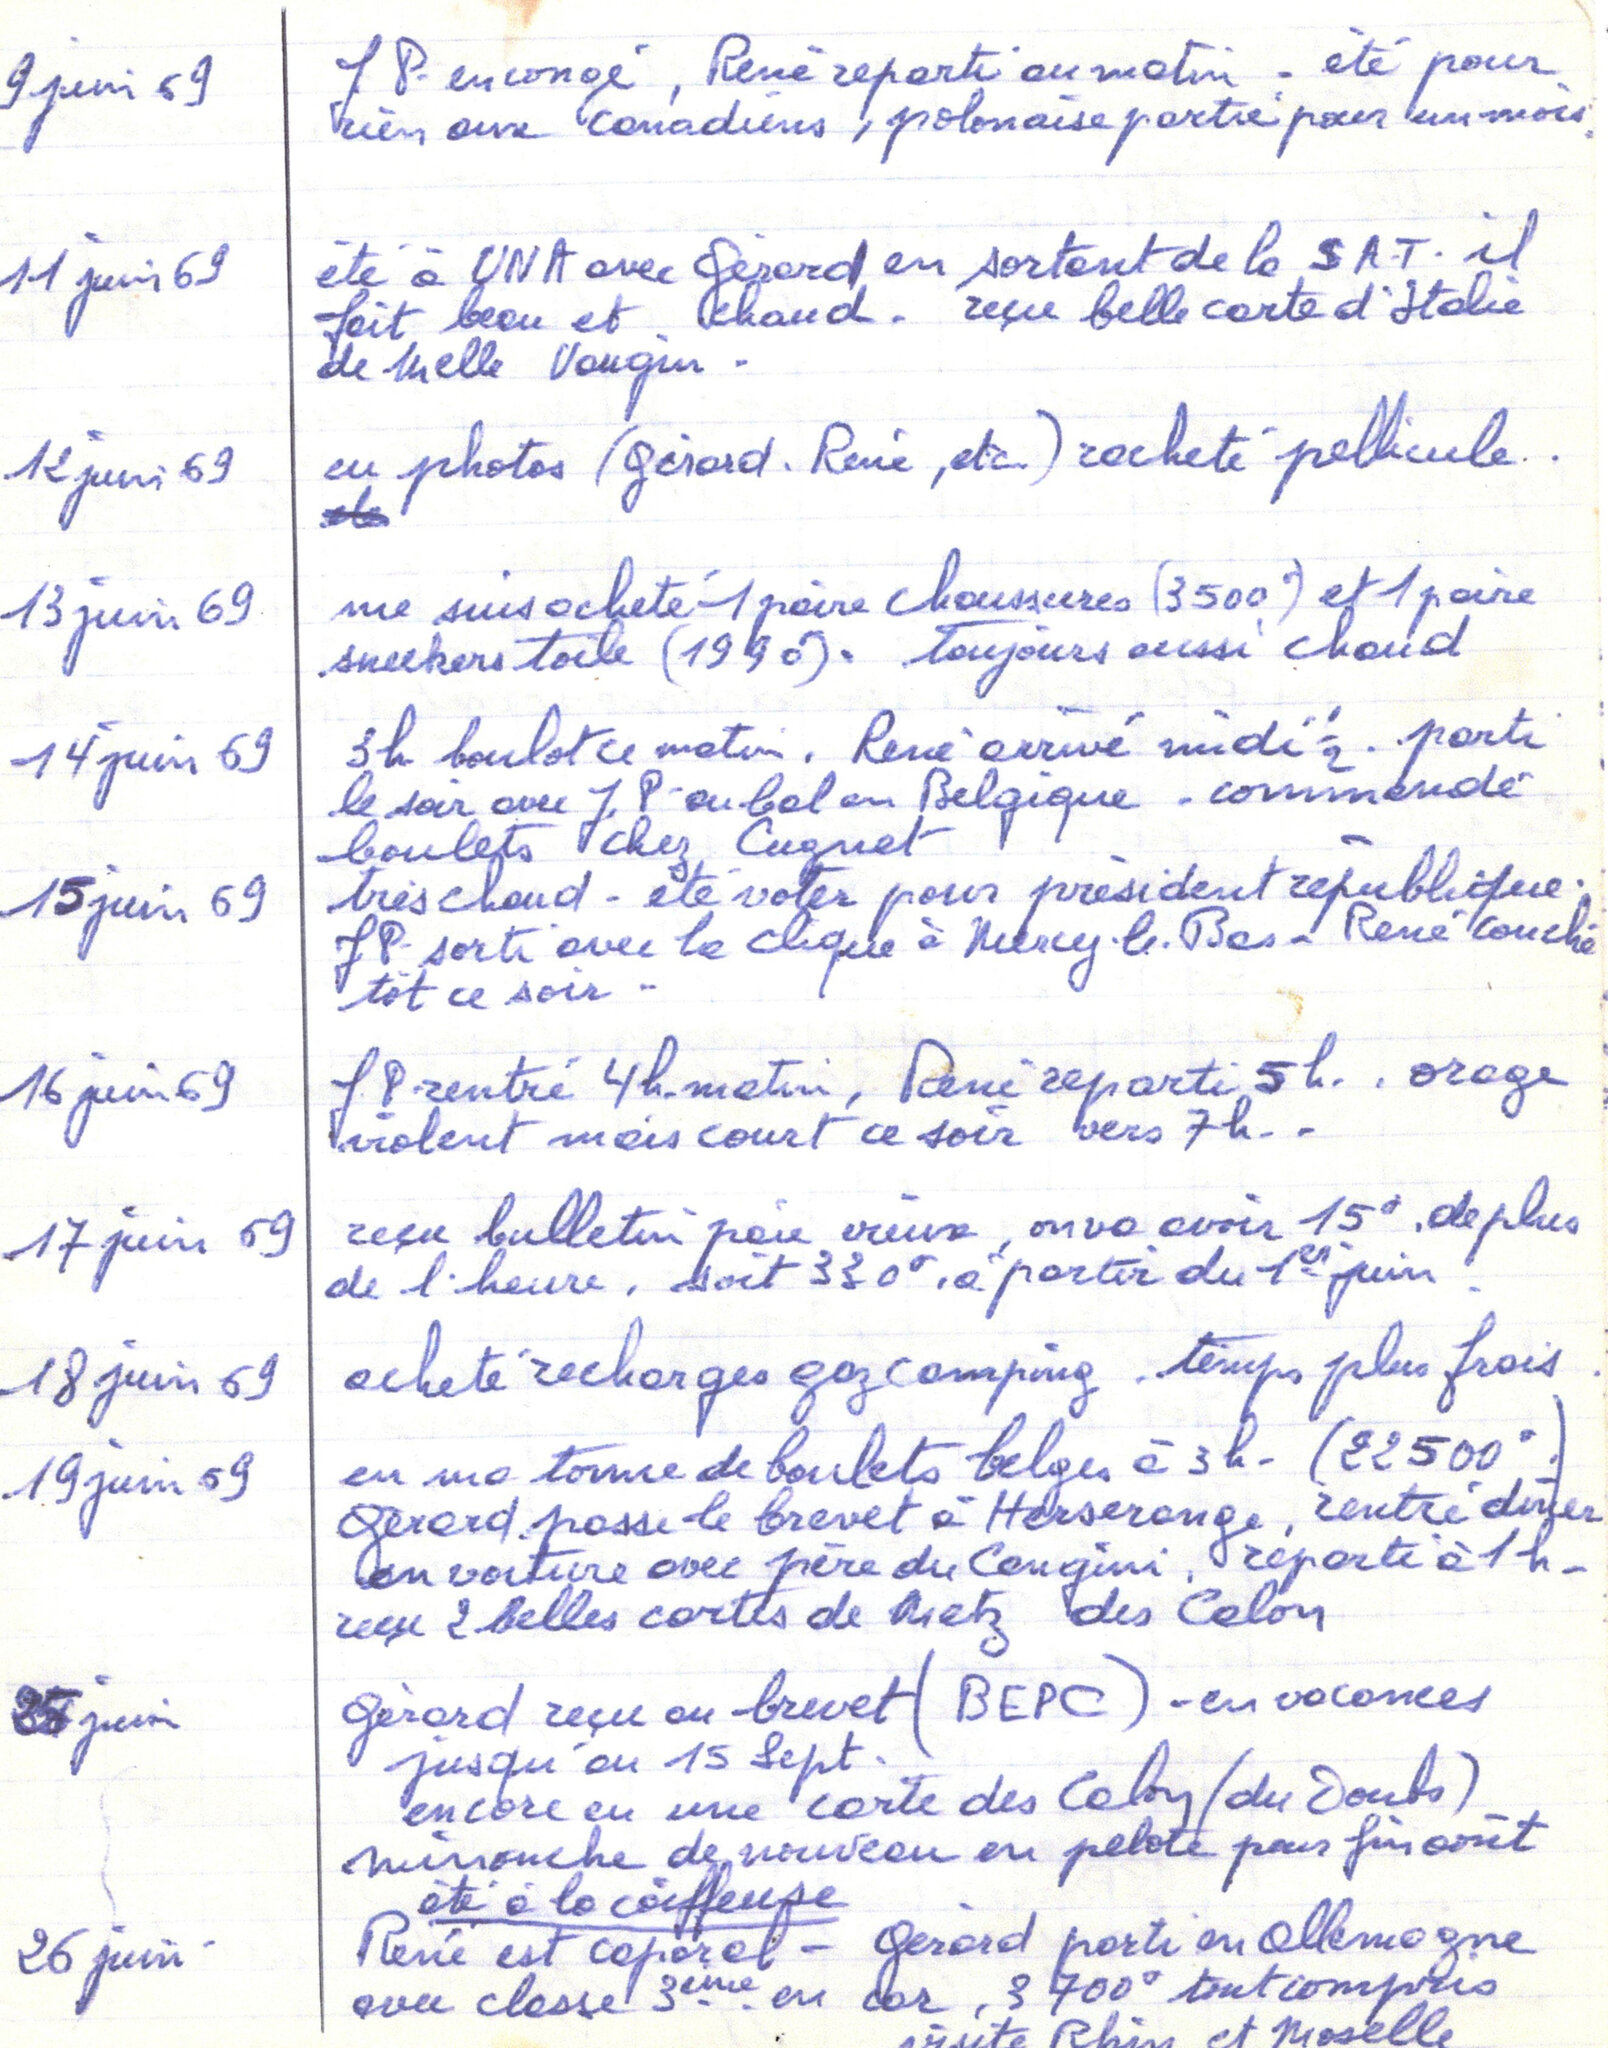 9 juin 69 J P. en congé, René reparti au matin - été pour
rien aux Canadiens, polonaise partie pour un mois.
11 juin 69 été à UNA avec Gérard en sortant de la S.A.T. il
fait beau et chaud. reçu belle carte d'Italie
de Melle Vaugin -
12 juin 69 eu photos (Gérard. René, etc..) racheté pellicule..
13 juin 69 me suis acheté 1 paire chaussures (3500°) et 1 paire
sneekers toile (1990°). Toujours aussi chaud
14 juin 69 3h boulot ce matin. René arrivé midi ½. parti
le soir avec J. P. au bal en Belgique. commandé
boulets chez Cugnet
15 juin 69 très chaud - été voter pour président république.
J P. sorti avec la clique à Mercy-le-Bas - René couché
tôt ce soir -
16 juin 69 J P. rentré 4h matin, René reparti 5h.. orage
violent mais court ce soir vers 7h. -
17 juin 69 reçu bulletin paie vieux, on va avoir 15°. de plus
de l'heure. soit 330°. à partir du 1er juin.
18 juin 69 acheté recharges gaz camping. temps plus frais.
19 juin 69 eu ma tonne de boulets belges à 3h- (22500°.)
Gérard passe le brevet à Herserange, rentré dîner
en voiture avec père du Cangini. reparti à 1h-
reçu 2 belles cartes de Metz des Calon
25 juin Gérard reçu au brevet (BEPC) - en vacances
jusqu'au 15 Sept.
encore eu une carte des Calon (du Doubs)
minouche de nouveau en pelote pour fin août
été à la coiffeuse
26 juin René est caporal - Gérard parti en Allemagne
avec classe 3ème en car, 3700° tout compris
visite Rhin et Moselle